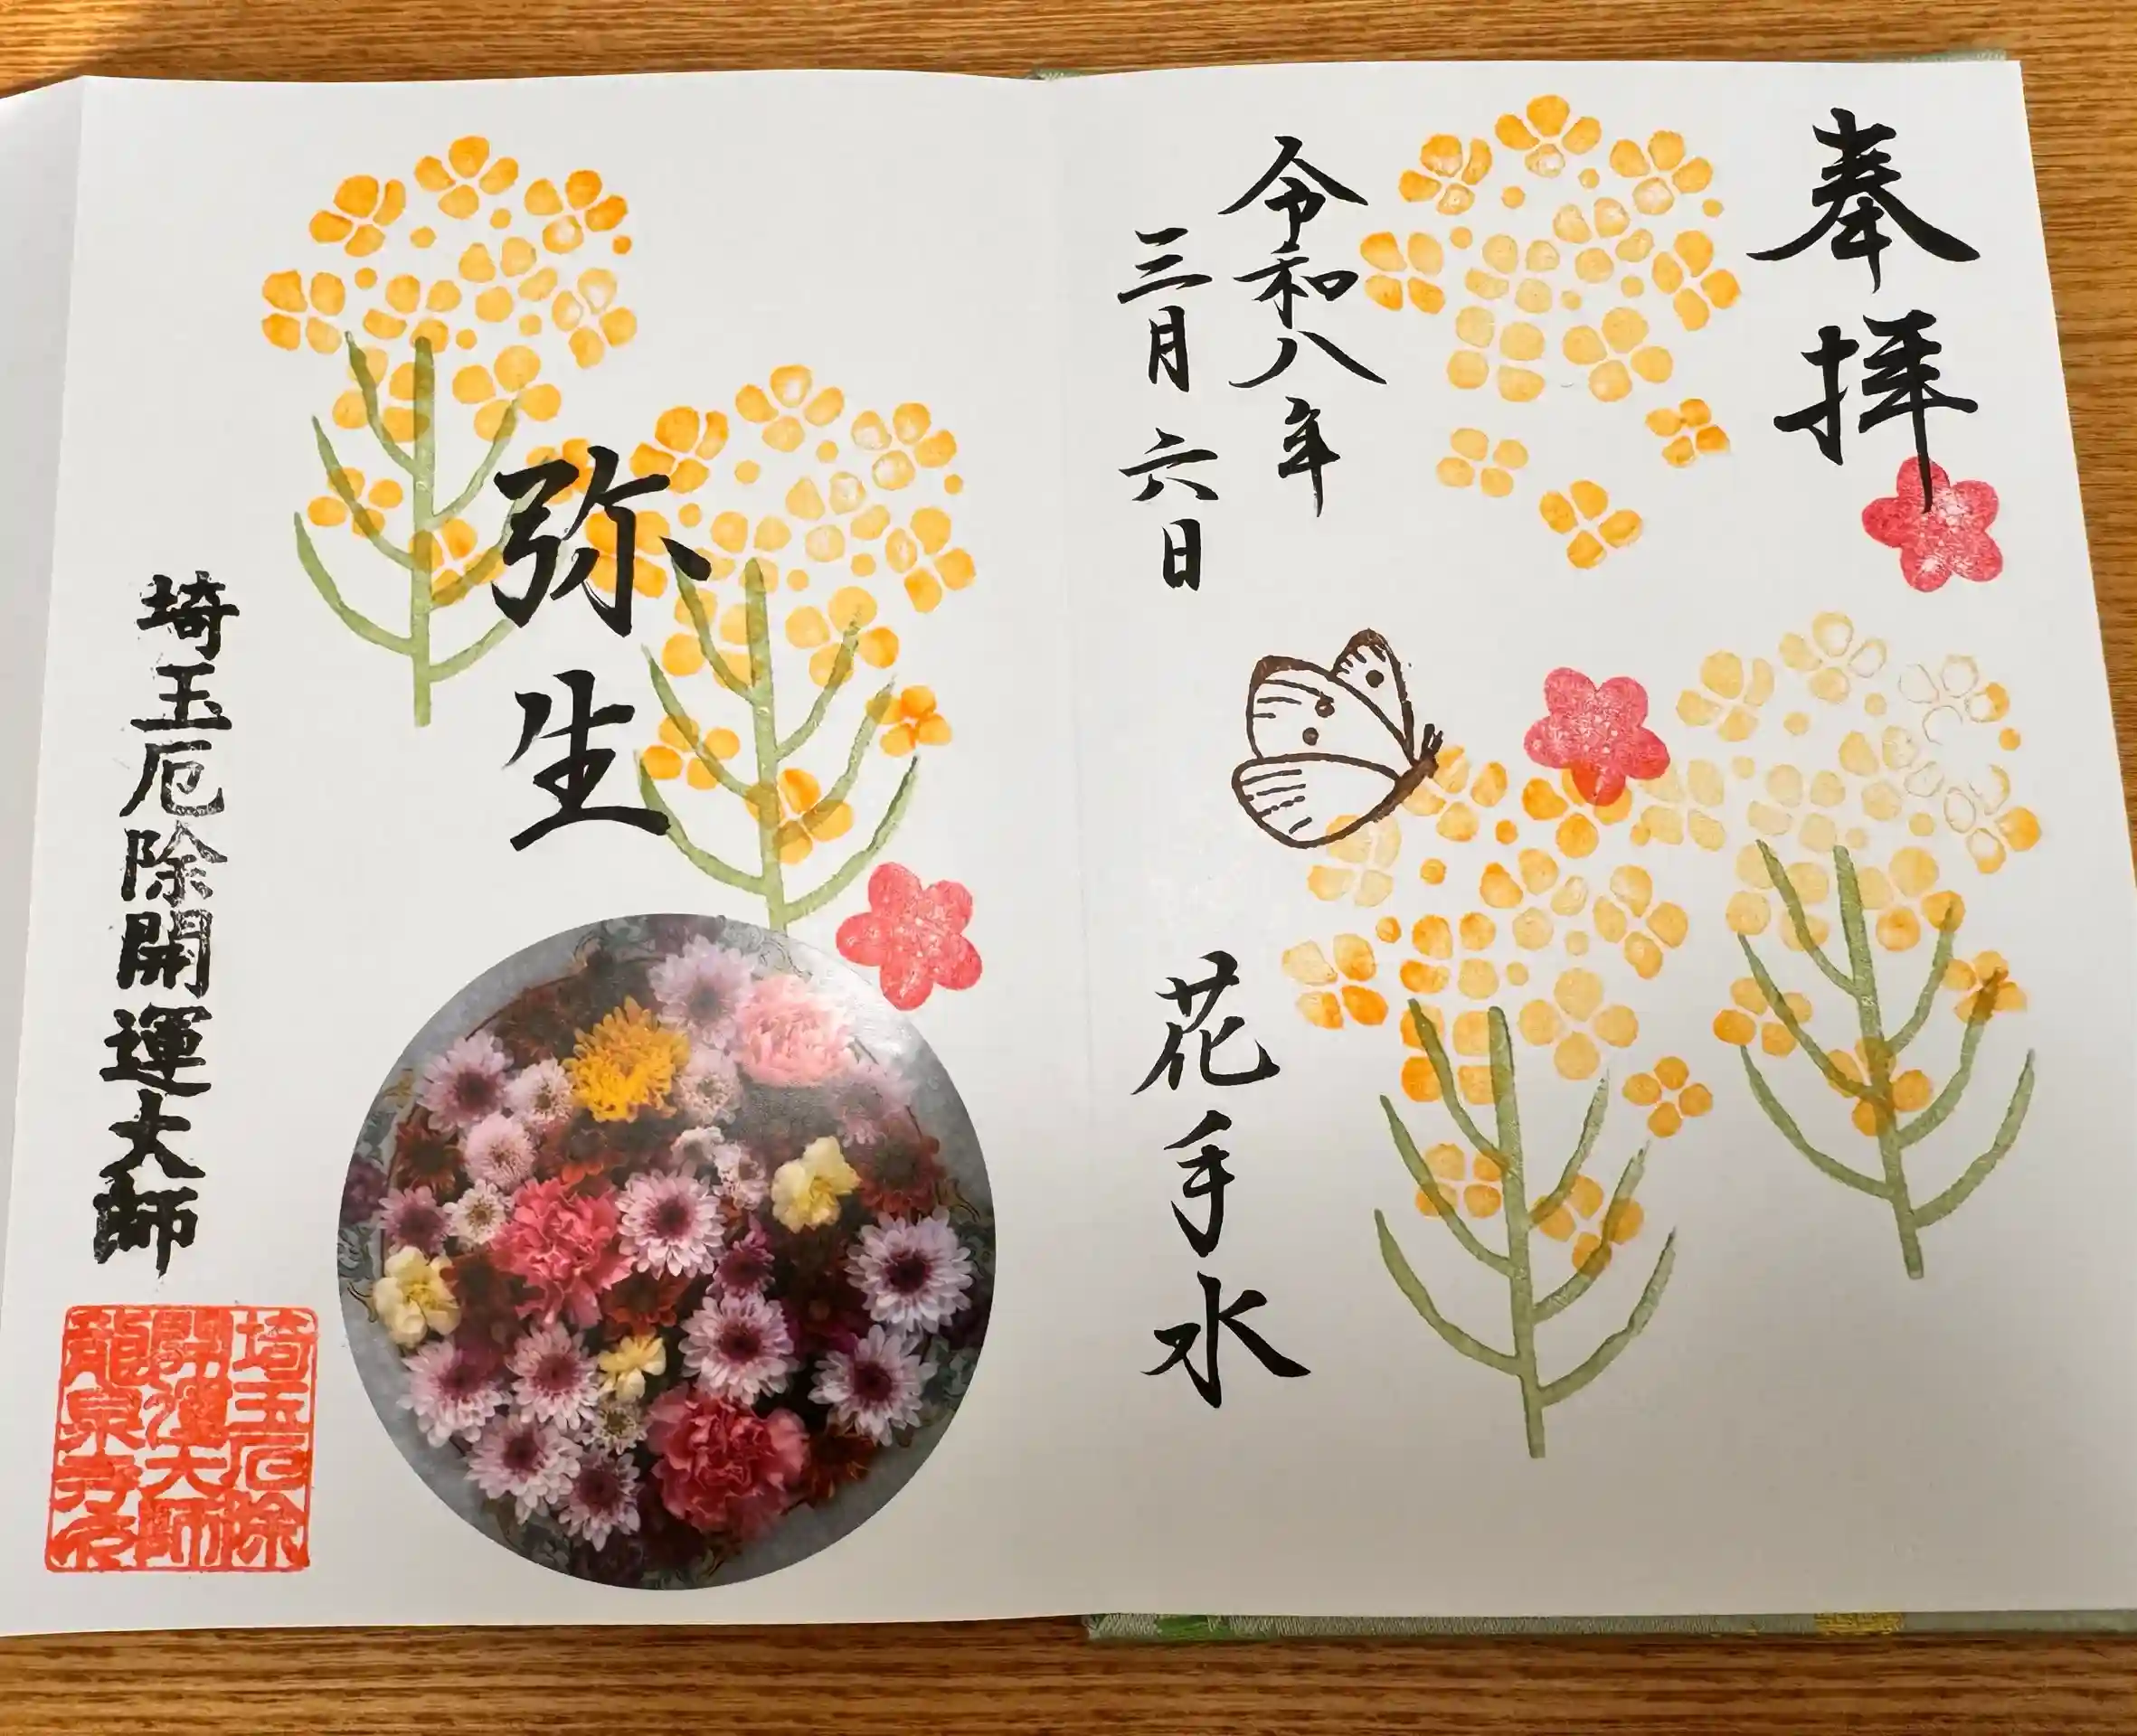 奉拝
令和八年
三月六日
花手水
弥生
埼玉厄除開運大師
埼玉厄除
開運大師
龍泉寺印